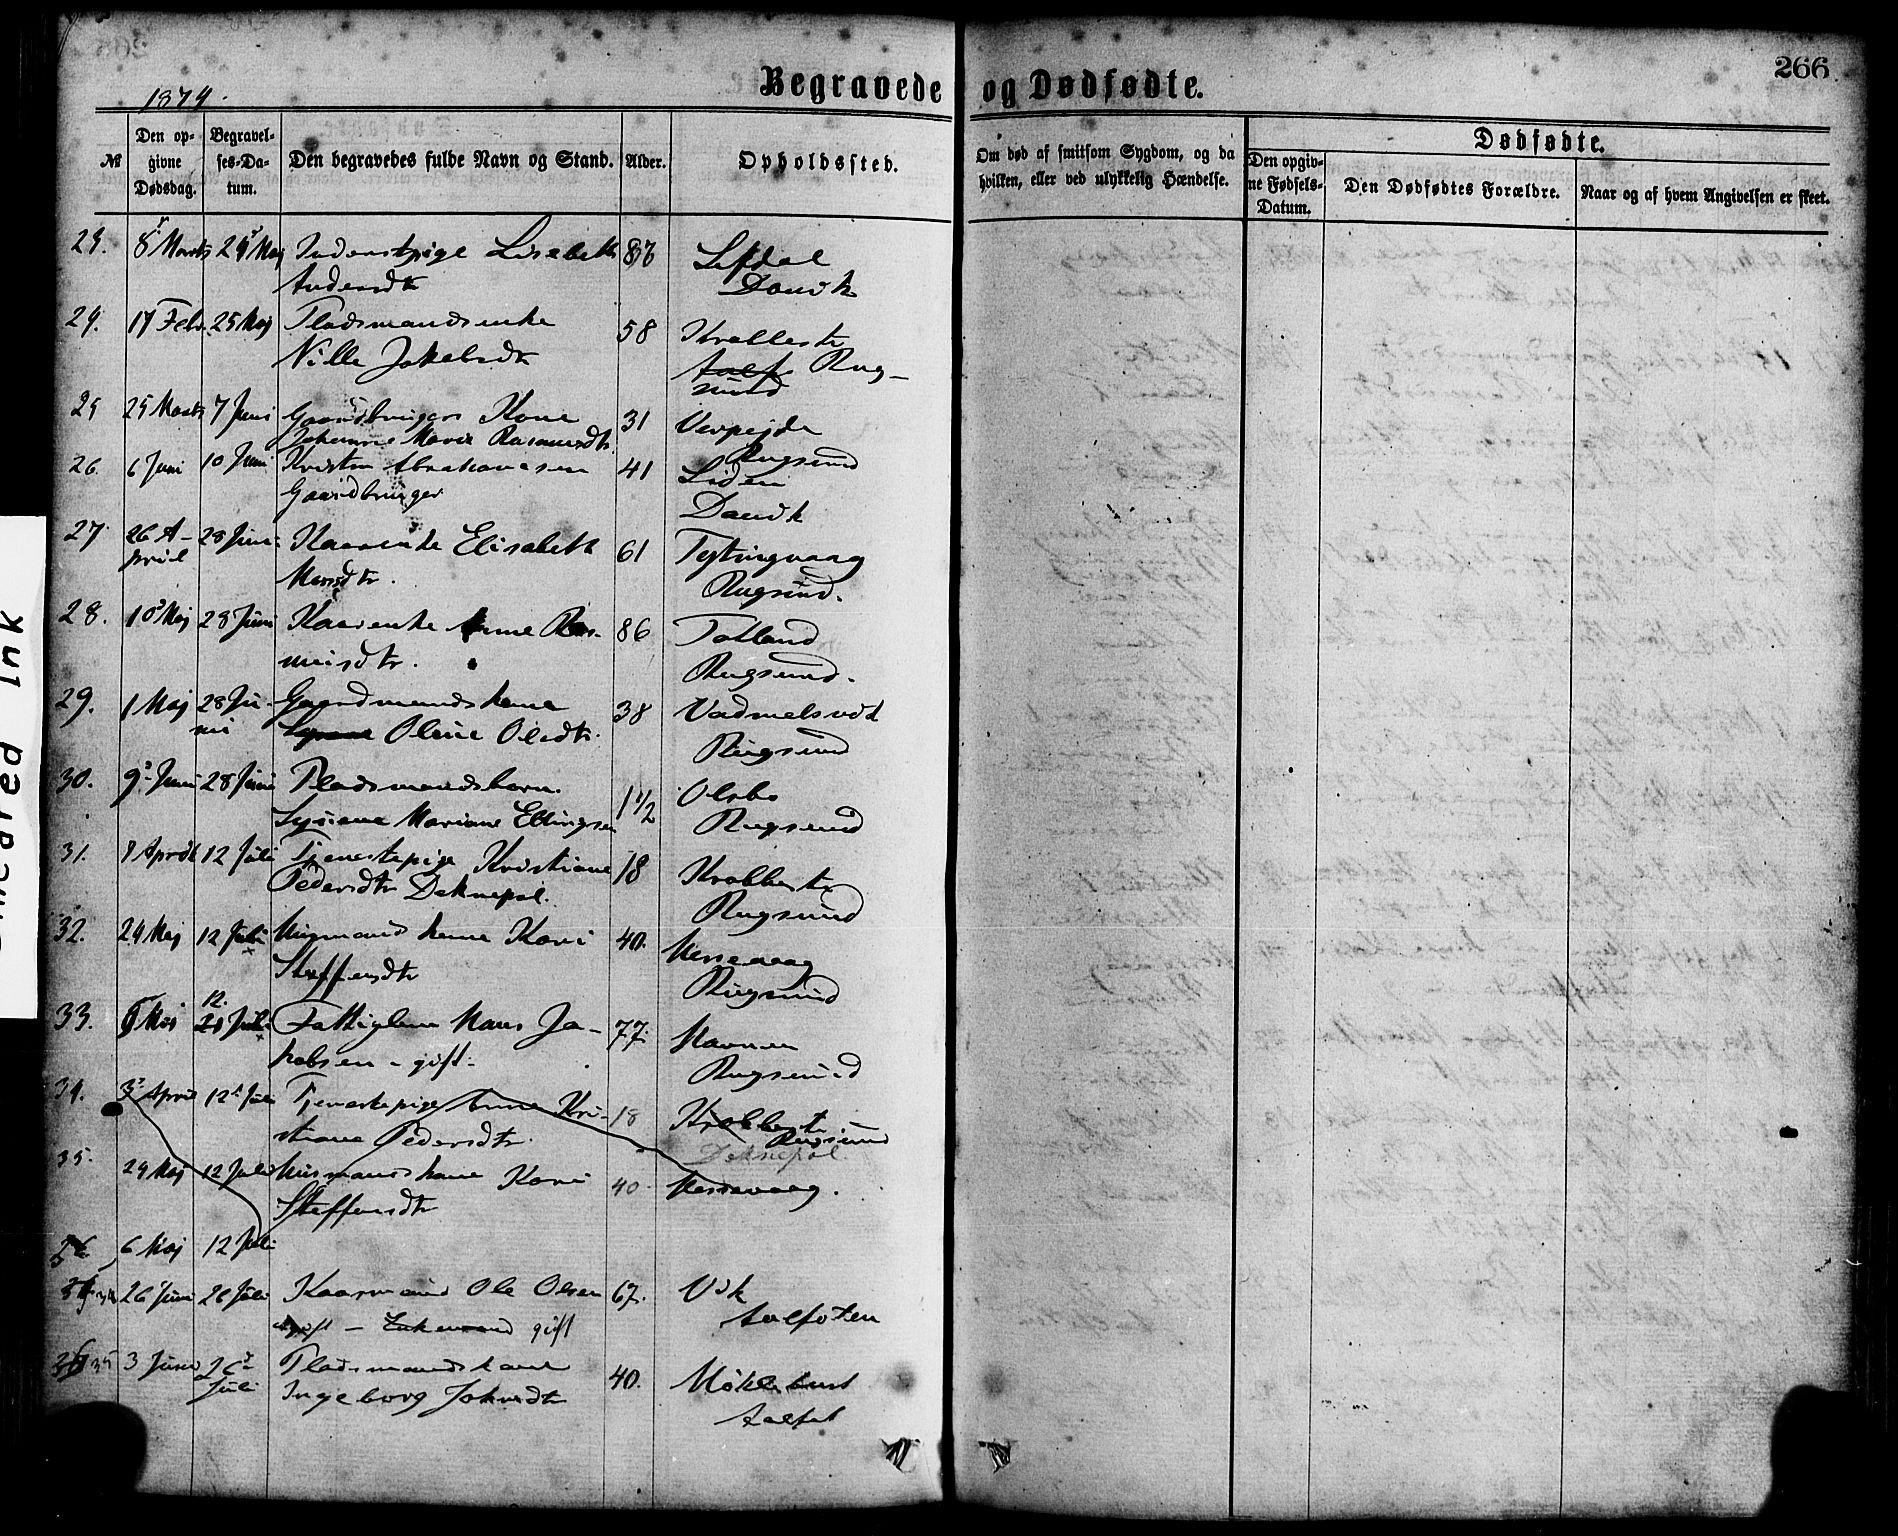 266
Begravede og Dødfødte.
1874.
№
Den op-
givne
Dødsdag.
Begravel-
ses-Da-
tum.
Den begravedes fulde Navn og Stand.
Alder.
Opholdssted.
Om død af smitsom Sygdom, og da
hvilken, eller ved ulykkelig Hændelse.
Dødfødte.
Den opgiv-
ne Fødsels-
Datum.
Den Dødfødtes Forældre.
Naar og af hvem Angivelsen er skeet.
8 Marts Maj Inderstpige Lisebeth
Andersdtr
Davik
24. 17 Febr. 25 Maj Pladsmandsenke 58
Nille Jakobsdtr Rug-
sund
25 25 Marts 7 Juni Gaardbrugers Kone 31
Johanne Marie Rasmusdtr
Rugsund
26. 6 Juni 10 Juni Kristen Abrahamsen 41 Liden
Gaardbruger
Davik
27 26 A- 28 Juni Kaarenke Elisabeth 61
pril Monsdtr. Rugsund.
28. 10 Maj 28 Juni Kaarenke Anne Ras- 86 Totland
musdtr. Rugsund.
29. 1 Maj 28 Ju- Gaardmandskone 38 Vadmelsvik
ni Oline Olsdtr. Rugsund
30. 9 Juni 28 Juni Pladsmandsbarn. 1 1/2
Mariane Ellingsen Rugsund
31. April 12 Juli Tjenestepige Kristiane 18
Pedersdtr Deknepol. Rugsund
32. 24 Maj 12 Juli Husmands kone Kari 40. Hessevaag
Steffensdtr Rugsund
33. Maj 12. Juli Fattiglem Hans Ja- 77. Havnen
kobsen - gift. Rugsund
34. 3 April 12 Juli Tjenestepige Anne Kri- 18
stiane Pedersdtr. Rugsund
Deknepol.
35. 24 Maj 12 Juli Husmands kone Kari 40 Hessevaag.
Steffensdtr
6 Maj 12 Juli
26 Juni 26 Juli Kaarmand Ole Olsen 67. Vik
gift - Enkemand gift Aalfoten
35 3 Juni 26 Pladsmandskone 40.
Juli Ingeborg Aalfot
Smeared Ink